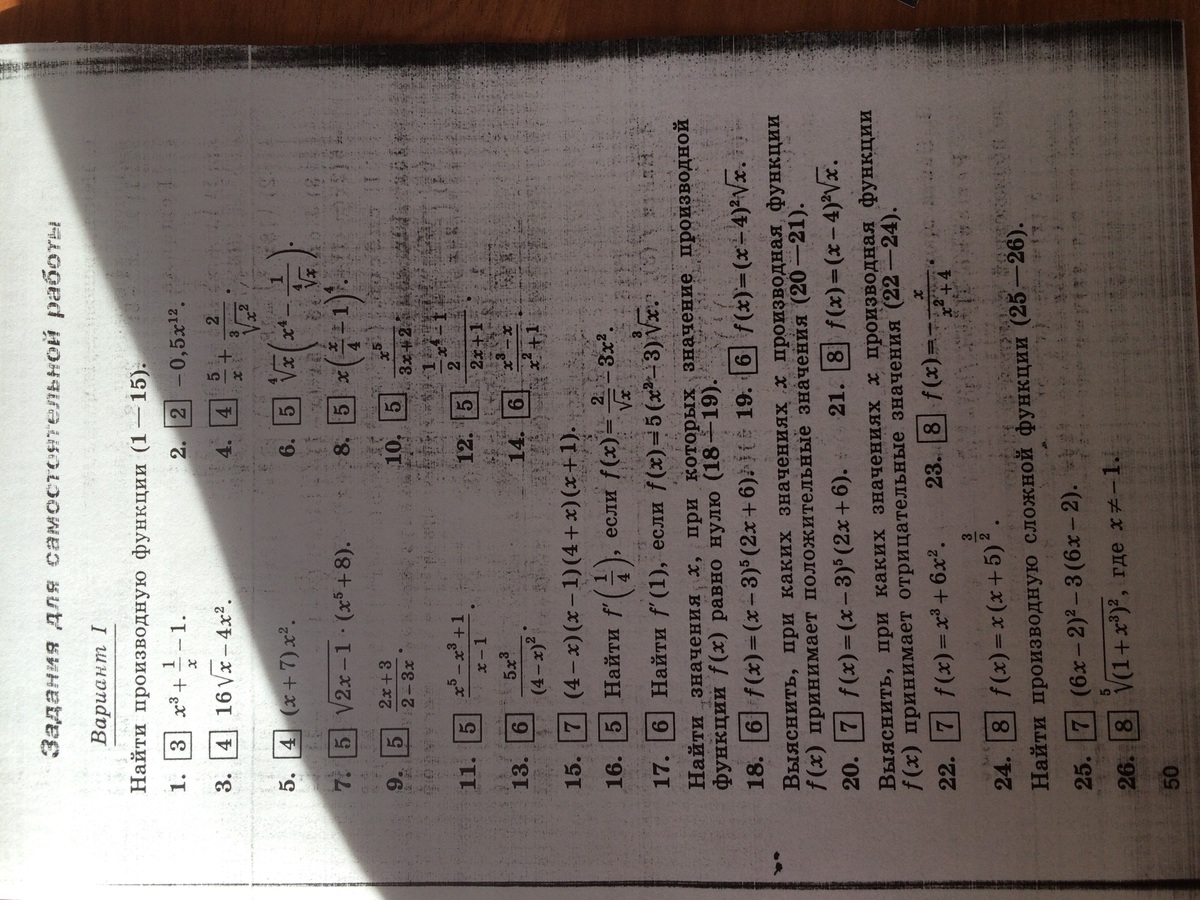 Задания для самостоятельной работы
Вариант I
Найти производную функции (1—15).
1. [3] x³ + 1/x − 1. 2. [2] −0,5x¹².
3. [4] 16√x − 4x². 4. [4] 5/x + 2/∛(x²).
5. [4] (x + 7)x². 6. [5] ⁴√x (x⁴ − 1/⁴√x).
7. [5] √(2x − 1) · (x⁵ + 8). 8. [5] x(x/4 − 1)⁴.
9. [5] (2x + 3)/(2 − 3x). 10. [5] x⁵/(3x + 2).
11. [5] (x⁵ − x³ + 1)/(x − 1). 12. [5] (1/2 x⁴ − 1)/(2x + 1).
13. [6] 5x³/(4 − x)². 14. [6] (x³ − x)/(x² + 1).
15. [7] (4 − x)(x − 1)(4 + x)(x + 1).
16. [5] Найти f′(1/4), если f(x) = 2/√x − 3x².
17. [6] Найти f′(1), если f(x) = 5(x² − 3)∛x.
Найти значения x, при которых значение производной
функции f(x) равно нулю (18—19).
18. [6] f(x) = (x − 3)⁵(2x + 6). 19. [6] f(x) = (x − 4)²√x.
Выяснить, при каких значениях x производная функции
f(x) принимает положительные значения (20—21).
20. [7] f(x) = (x − 3)⁵(2x + 6). 21. [8] f(x) = (x − 4)²√x.
Выяснить, при каких значениях x производная функции
f(x) принимает отрицательные значения (22—24).
22. [7] f(x) = x³ + 6x². 23. [8] f(x) = − x/(x² + 4).
24. [8] f(x) = x(x + 5)^(3/2).
Найти производную сложной функции (25—26).
25. [7] (6x − 2)² − 3(6x − 2).
26. [8] ⁵√((1 + x³)²), где x ≠ −1.
50